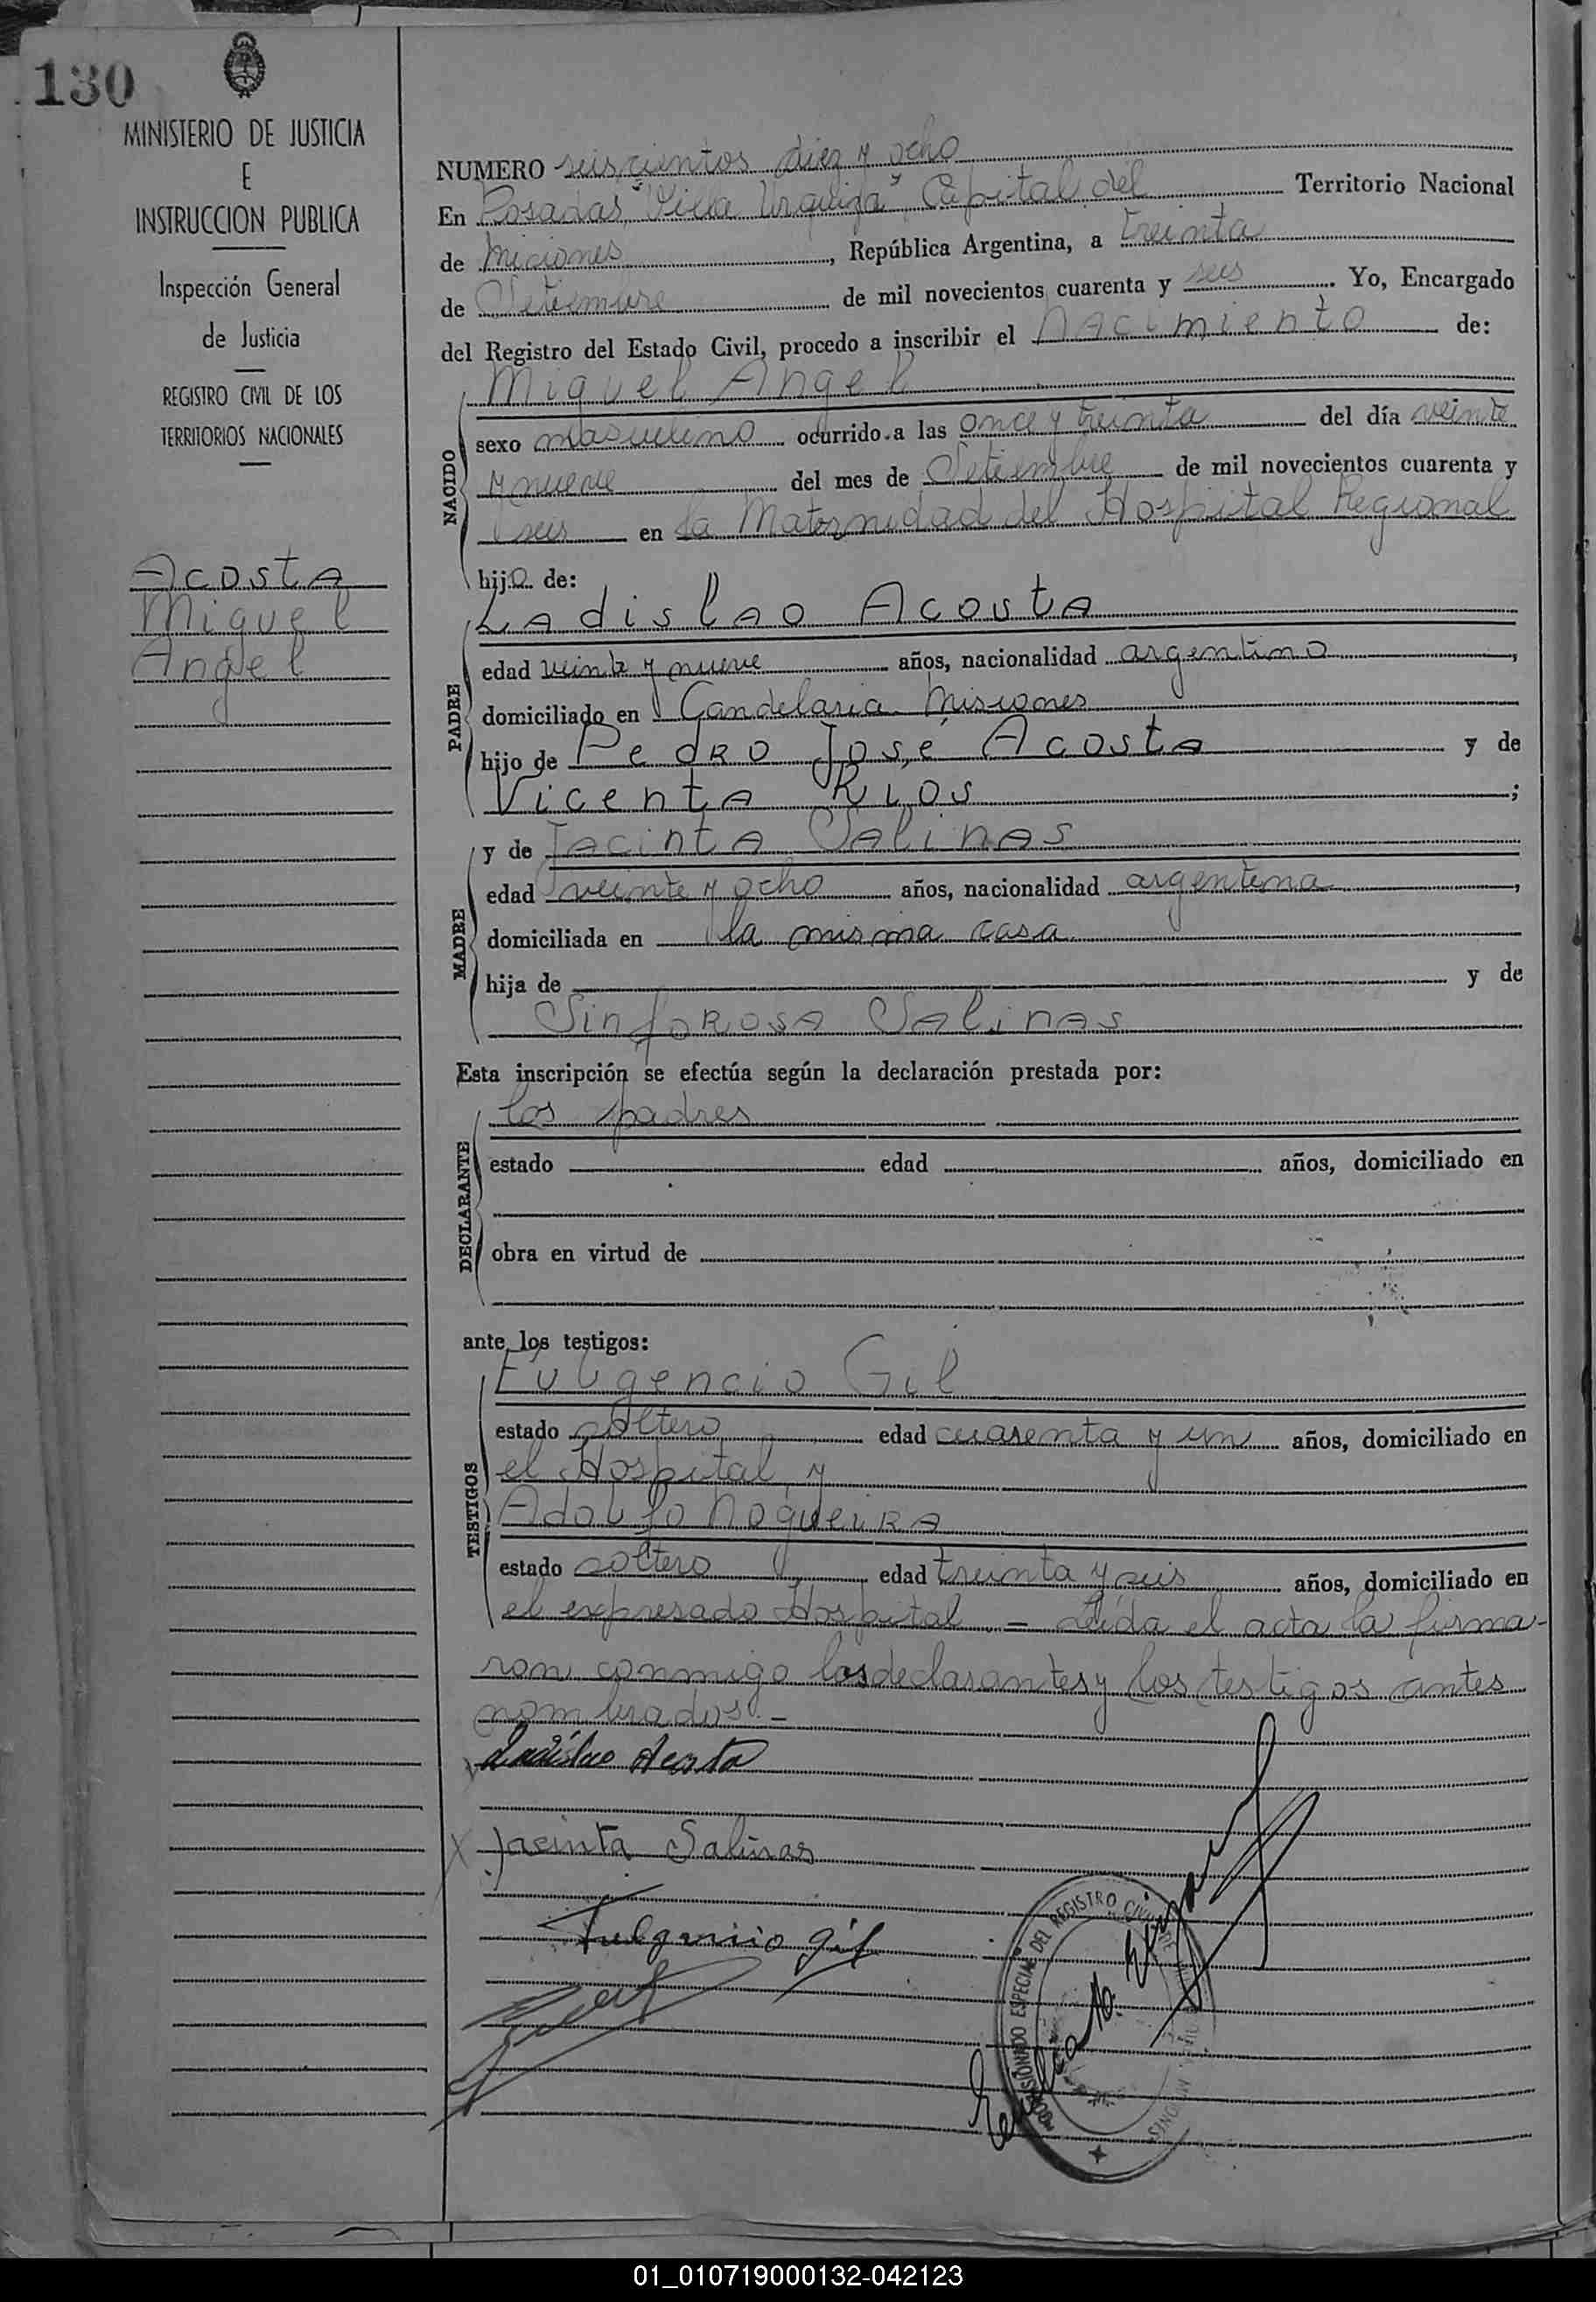 130
MINISTERIO DE JUSTICIA
E
INSTRUCCION PUBLICA
Inspección General
de Justicia
REGISTRO CIVIL DE LOS
TERRITORIOS NACIONALES
Acosta
Miguel
Angel
NUMERO seiscientos diez y ocho
En Posadas "Villa Urquiza" Capital del Territorio Nacional
de Miciones, República Argentina, a treinta
de Setiembre de mil novecientos cuarenta y seis. Yo, Encargado
del Registro del Estado Civil, procedo a inscribir el nacimiento de:
Miguel Angel
NACIDO
sexo masculino ocurrido a las once y treinta del día veinte
y nueve del mes de Setiembre de mil novecientos cuarenta y
seis en la Maternidad del Hospital Regional
hijo de:
Ladislao Acosta
PADRE
edad veinte y nueve años, nacionalidad argentino,
domiciliado en Candelaria Misiones
hijo de Pedro José Acosta y de
Vicenta Rios;
y de Jacinta Salinas
MADRE
edad veinte y ocho años, nacionalidad argentina,
domiciliada en la misma casa
hija de y de
Sinforosa Salinas
Esta inscripción se efectúa según la declaración prestada por:
los padres
DECLARANTE
estado edad años, domiciliado en
obra en virtud de
ante los testigos:
Fulgencio Gil
TESTIGOS
estado soltero edad cuarenta y un años, domiciliado en
el Hospital y
Adolfo Nogueira
estado soltero edad treinta y seis años, domiciliado en
el expresado Hospital. - Leída el acta la firma-
ron conmigo los declarantes y los testigos antes
nombrados. -
Ladislao Acosta
x Jacinta Salinas
Fulgencio Gil
COMISIONADO ESPECIAL DEL REGISTRO CIVIL
01_010719000132-042123